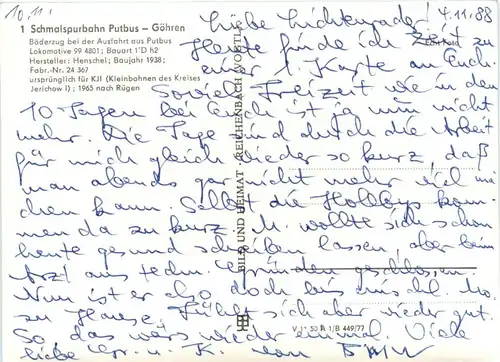 10.11.
1 Schmalspurbahn Putbus – Göhren
Bäderzug bei der Ausfahrt aus Putbus
Lokomotive 99 4801; Bauart 1'D h2
Hersteller: Henschel; Baujahr 1938;
Fabr.-Nr. 24 367
ursprünglich für KJI (Kleinbahnen des Kreises
Jerichow I); 1965 nach Rügen
4.11.88
Liebe Lichtenrader!
Heute finde ich Zeit zu
einer Karte an Euch
Soviel Freizeit wie in den
10 Tagen bei Euch ist ja nun nicht
mehr. Die Tage sind durch die Arbeit
für mich gleich wieder so kurz, daß
man abends gar nicht mehr viel ma-
chen kann. Selbst die Hobbys kom-
men da zu kurz. M. wollte sich schon
heute gesund schreiben lassen, aber beim
Arzt aus techn. Gründen geschlossen.
Nun ist er also doch bis
zu Hause. Fühlt sich aber wieder gut.
So, das wär's wieder einmal. Viele
liebe Gr. u. K. von
BILD UND HEIMAT · REICHENBACH (VOGTL)
V 11 50 A 1/B 449/77